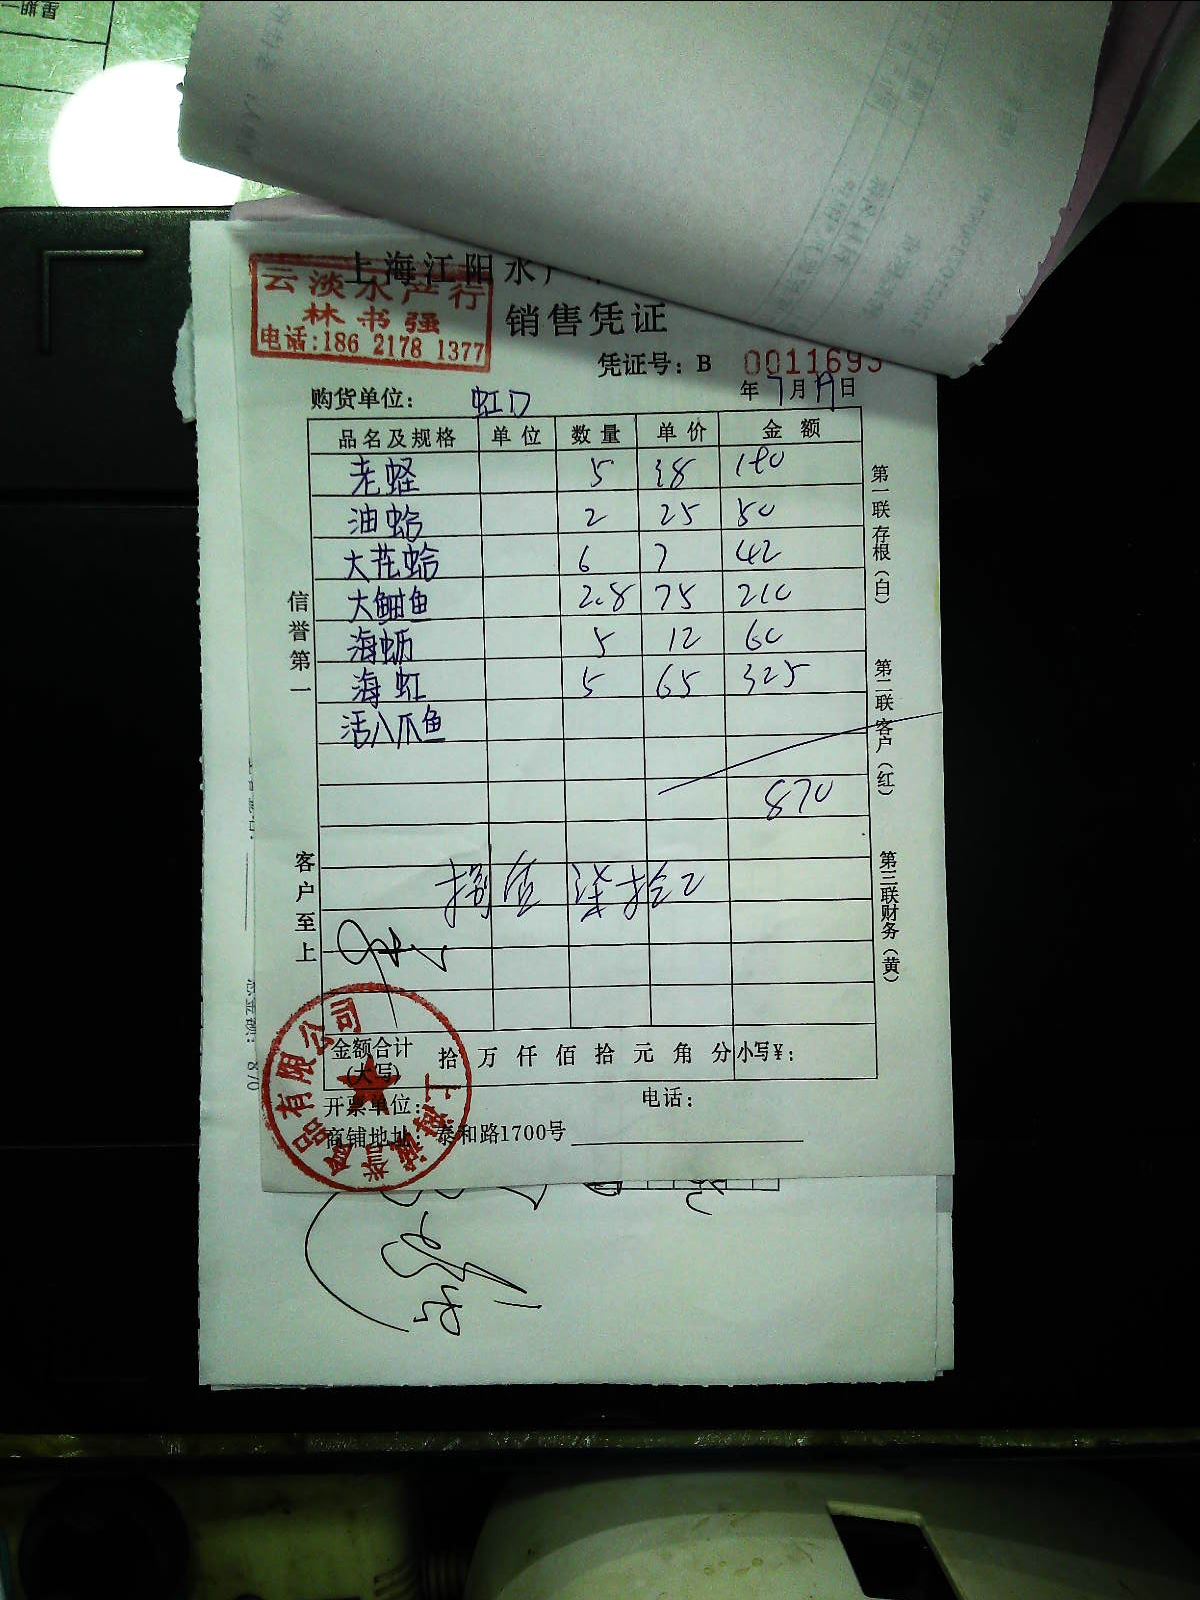 上海江阳水产
云淡水产行
林书强
电话:186 2178 1377
销售凭证
凭证号: B 0011693
年 7 月 19 日
购货单位: 虹口
品名及规格 单位 数量 单价 金额
老蛏 5 38 190
油蛤 2 25 50
大花蛤 6 7 42
大鲳鱼 2.8 75 210
海蛎 5 12 60
海虹 5 65 325
活八爪鱼
870
捌佰 柒拾
信誉第一
客户至上
第一联存根(白)
第二联客户(红)
第三联财务(黄)
金额合计(大写) 拾 万 仟 佰 拾 元 角 分 小写¥:
开票单位: 电话:
商铺地址: 泰和路1700号
上海诚誉食品有限公司